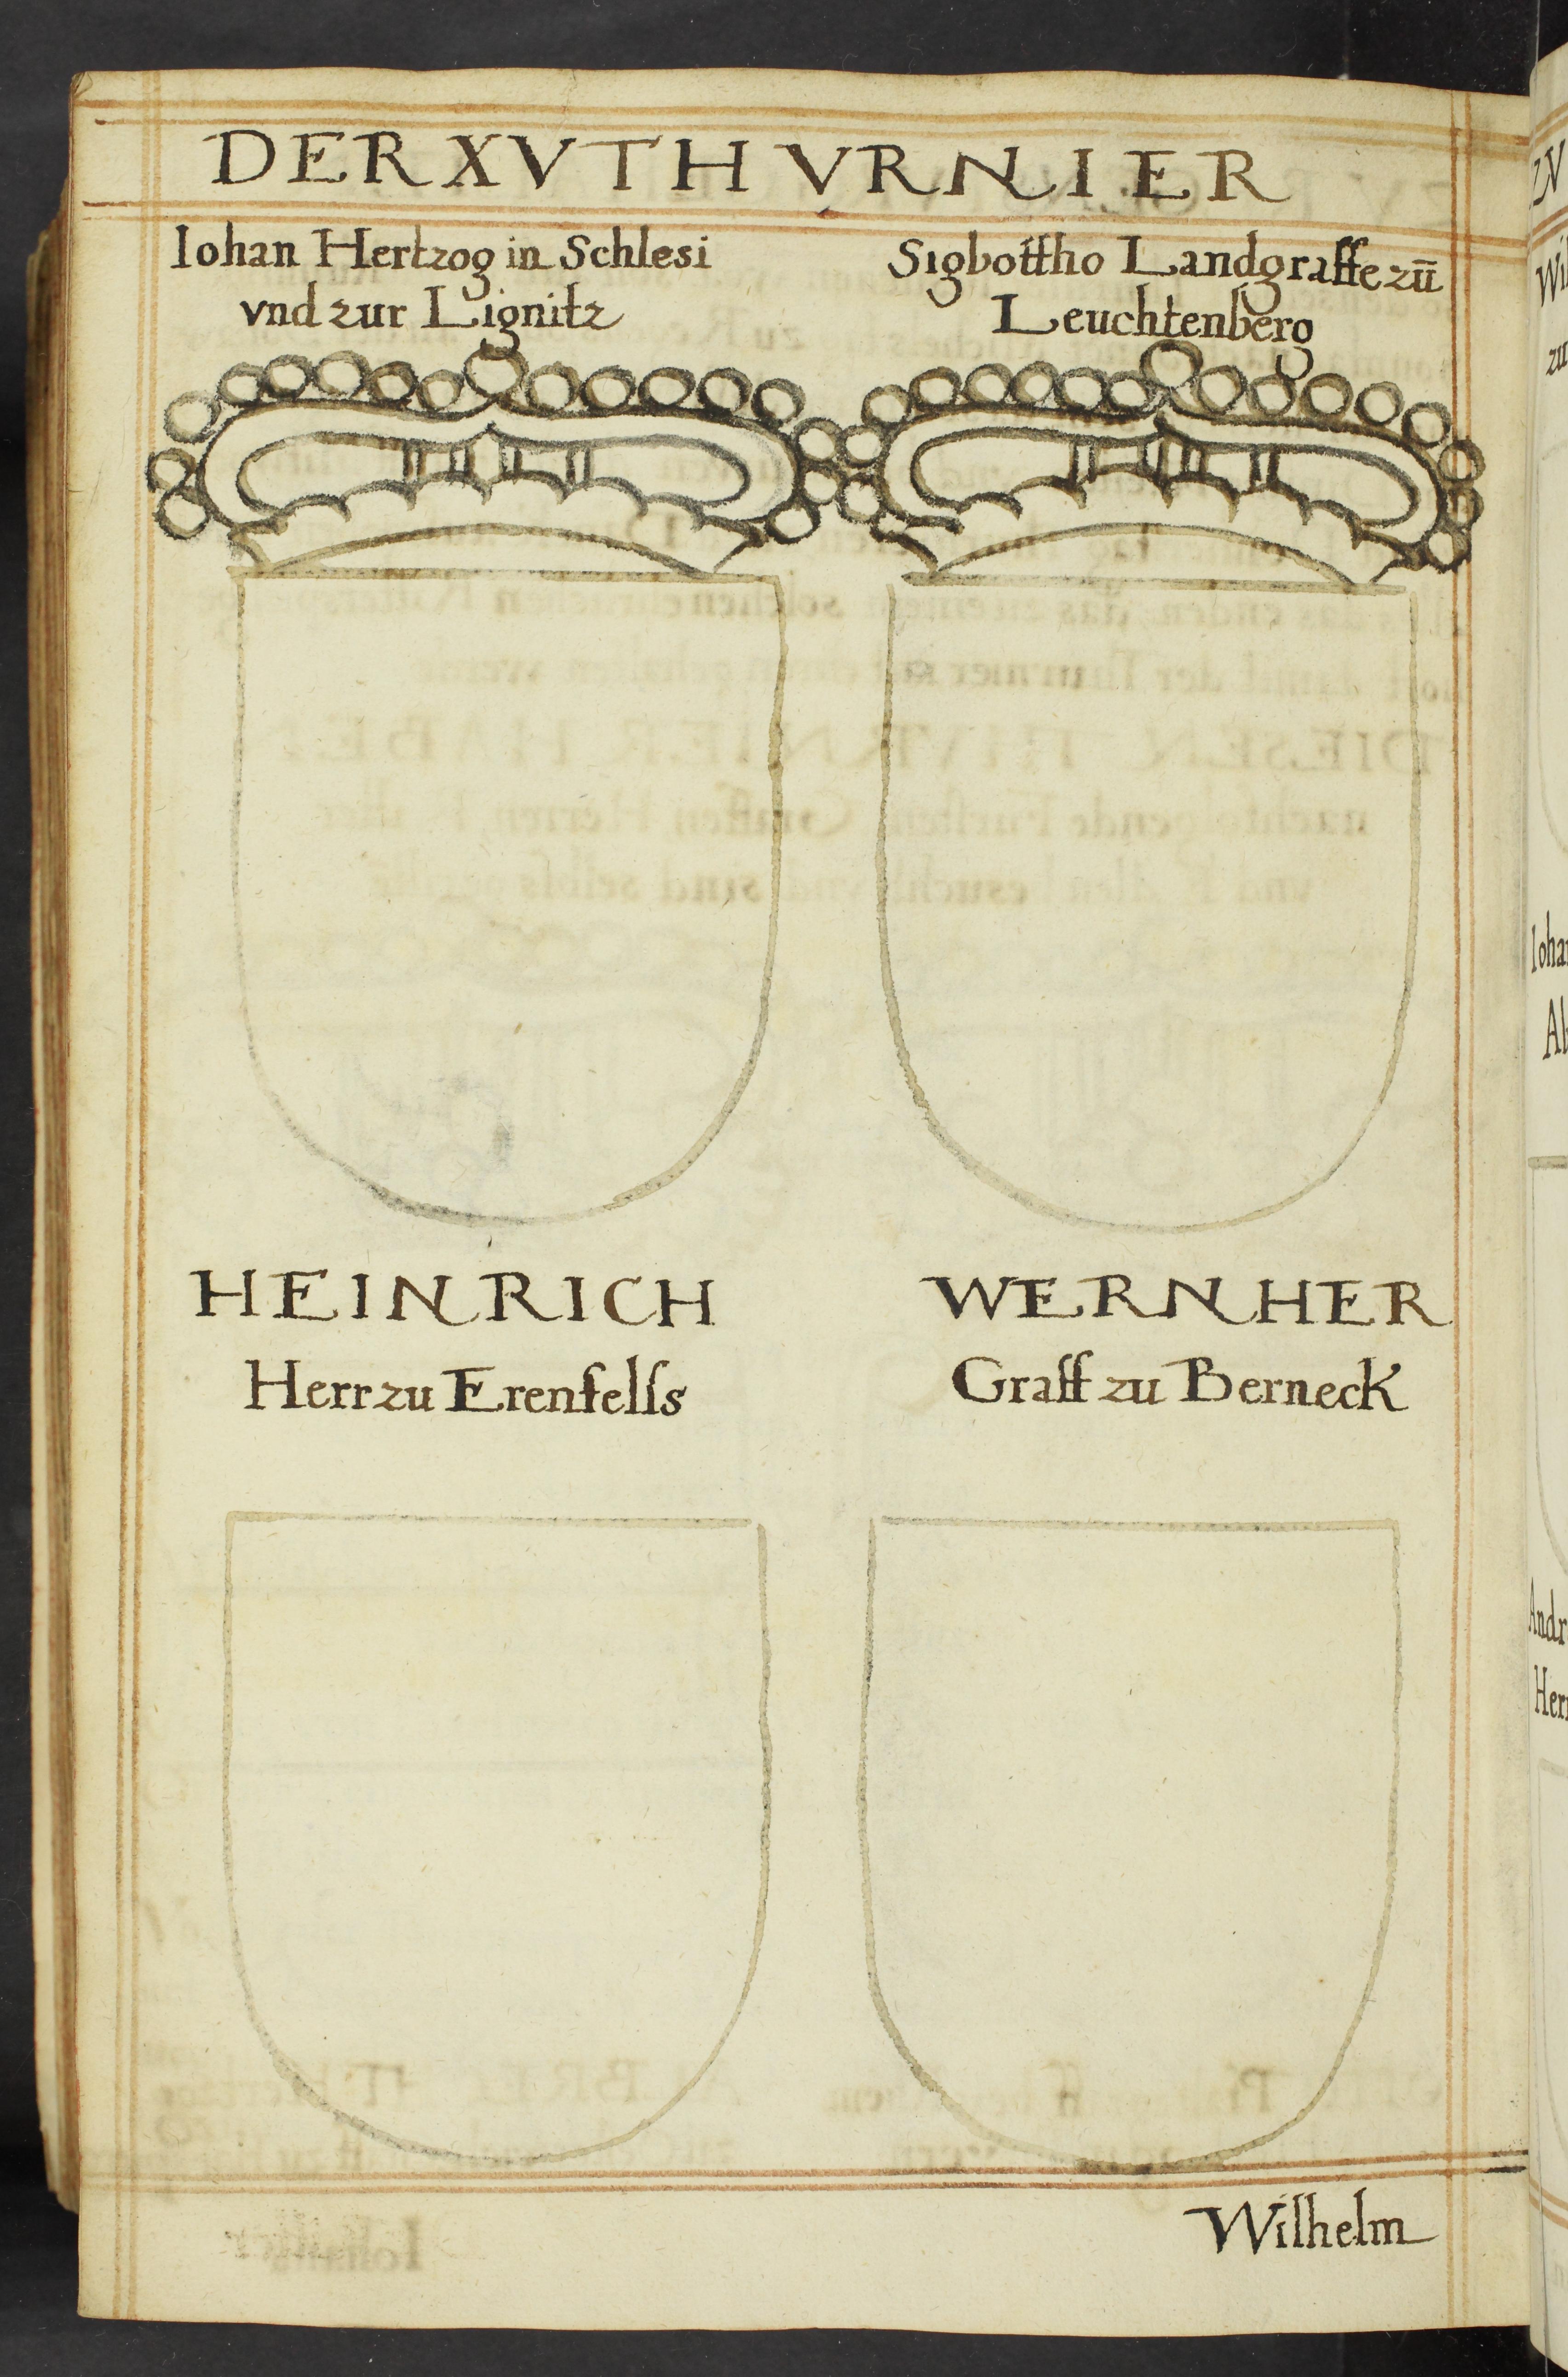 DER XV THVRNIER
Iohan Hertzog in Schlesi
vnd zur Lignitz
Sigbottho Landgraffe zū
Leuchtenberg
HEINRICH
Herr zu Erenfelſs
WERNHER
Graff zu Berneck
Wilhelm